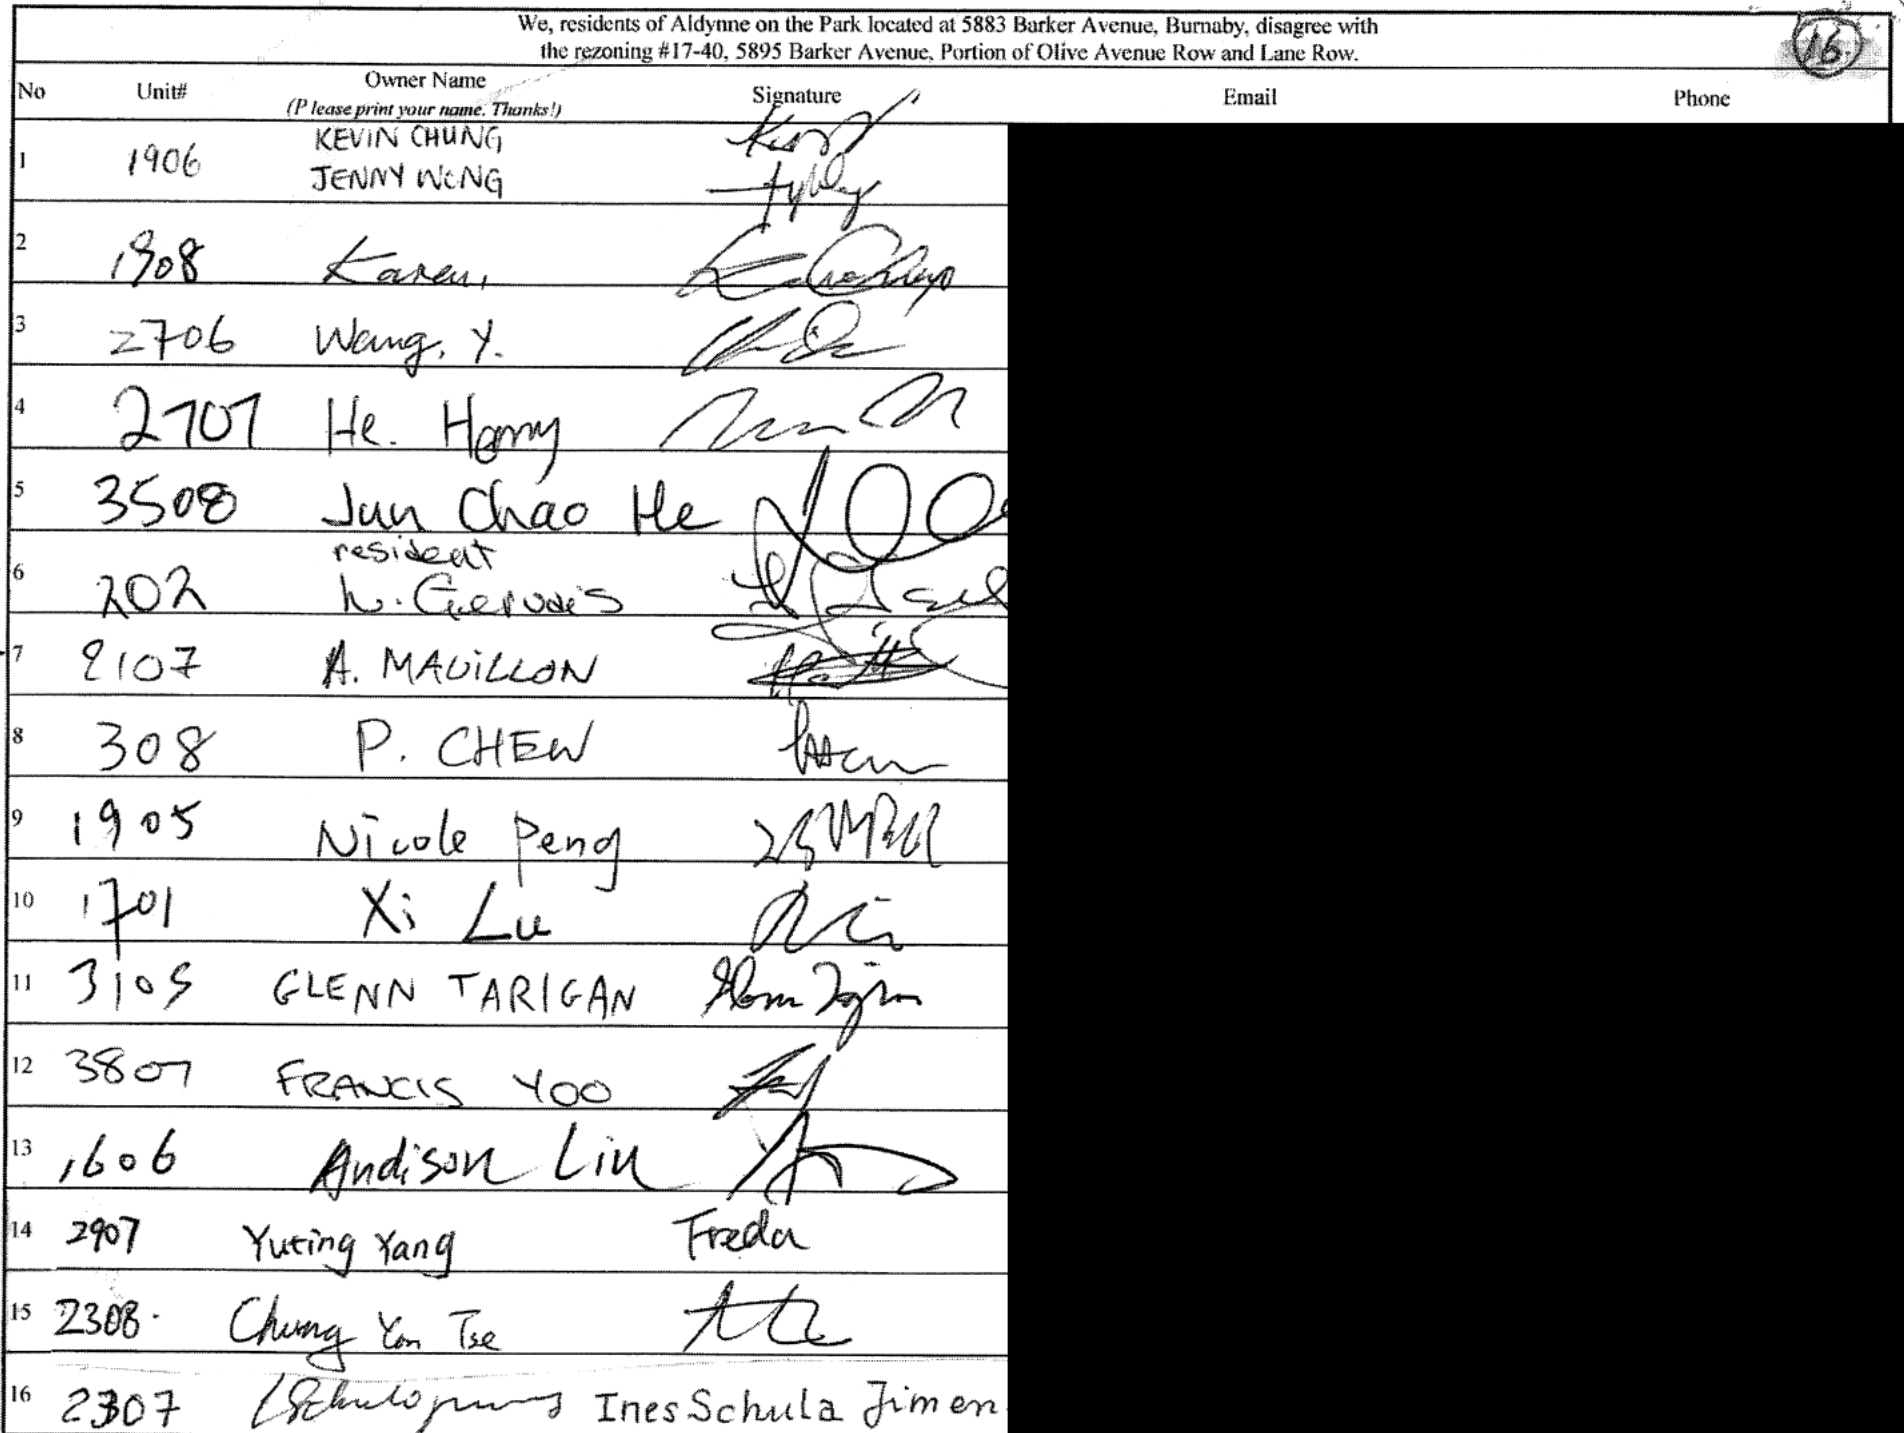 We, residents of Aldynne on the Park located at 5883 Barker Avenue, Burnaby, disagree with
the rezoning #17-40, 5895 Barker Avenue, Portion of Olive Avenue Row and Lane Row.
16
No Unit# Owner Name Signature Email Phone
(Please print your name. Thanks!)
1 1906 KEVIN CHUNG
JENNY WONG
2 1908 Karen,
3 2706 Wang, Y.
4 2707 He. Harry
5 3508 Jun Chao He
resident
6 202 L. Gervais
7 2107 A. MAUILLON
8 308 P. CHEW
9 1905 Nicole Peng
10 1701 Xi Lu
11 3105 GLENN TARIGAN
12 3807 FRANCIS YOO
13 1606 Andison Liu
14 2907 Yuting Yang Freda
15 2308. Chung Yan Tse
16 2307 Ines Schula Jimen